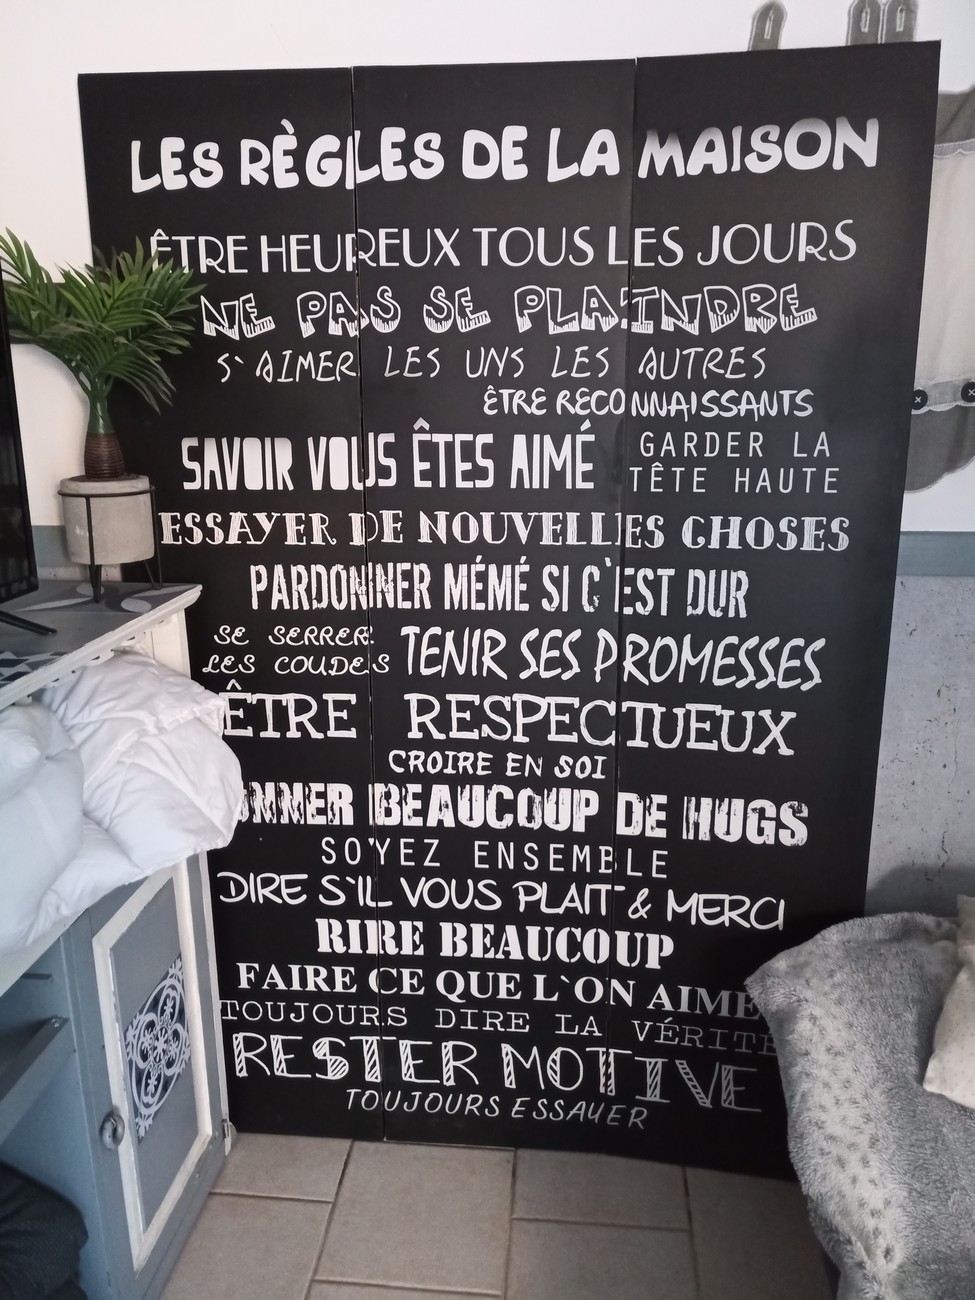 LES RÈGLES DE LA MAISON
ÊTRE HEUREUX TOUS LES JOURS
NE PAS SE PLAINDRE
S`AIMER LES UNS LES AUTRES
ÊTRE RECONNAISSANTS
SAVOIR VOUS ÊTES AIMÉ
GARDER LA
TÊTE HAUTE
ESSAYER DE NOUVELLES CHOSES
PARDONNER MÉMÉ SI C`EST DUR
SE SERRER
LES COUDES
TENIR SES PROMESSES
ÊTRE RESPECTUEUX
CROIRE EN SOI
ONNER BEAUCOUP DE HUGS
SOYEZ ENSEMBLE
DIRE S`IL VOUS PLAIT & MERCI
RIRE BEAUCOUP
FAIRE CE QUE L`ON AIME
TOUJOURS DIRE LA VÉRITÉ
RESTER MOTIVE
TOUJOURS ESSAYER